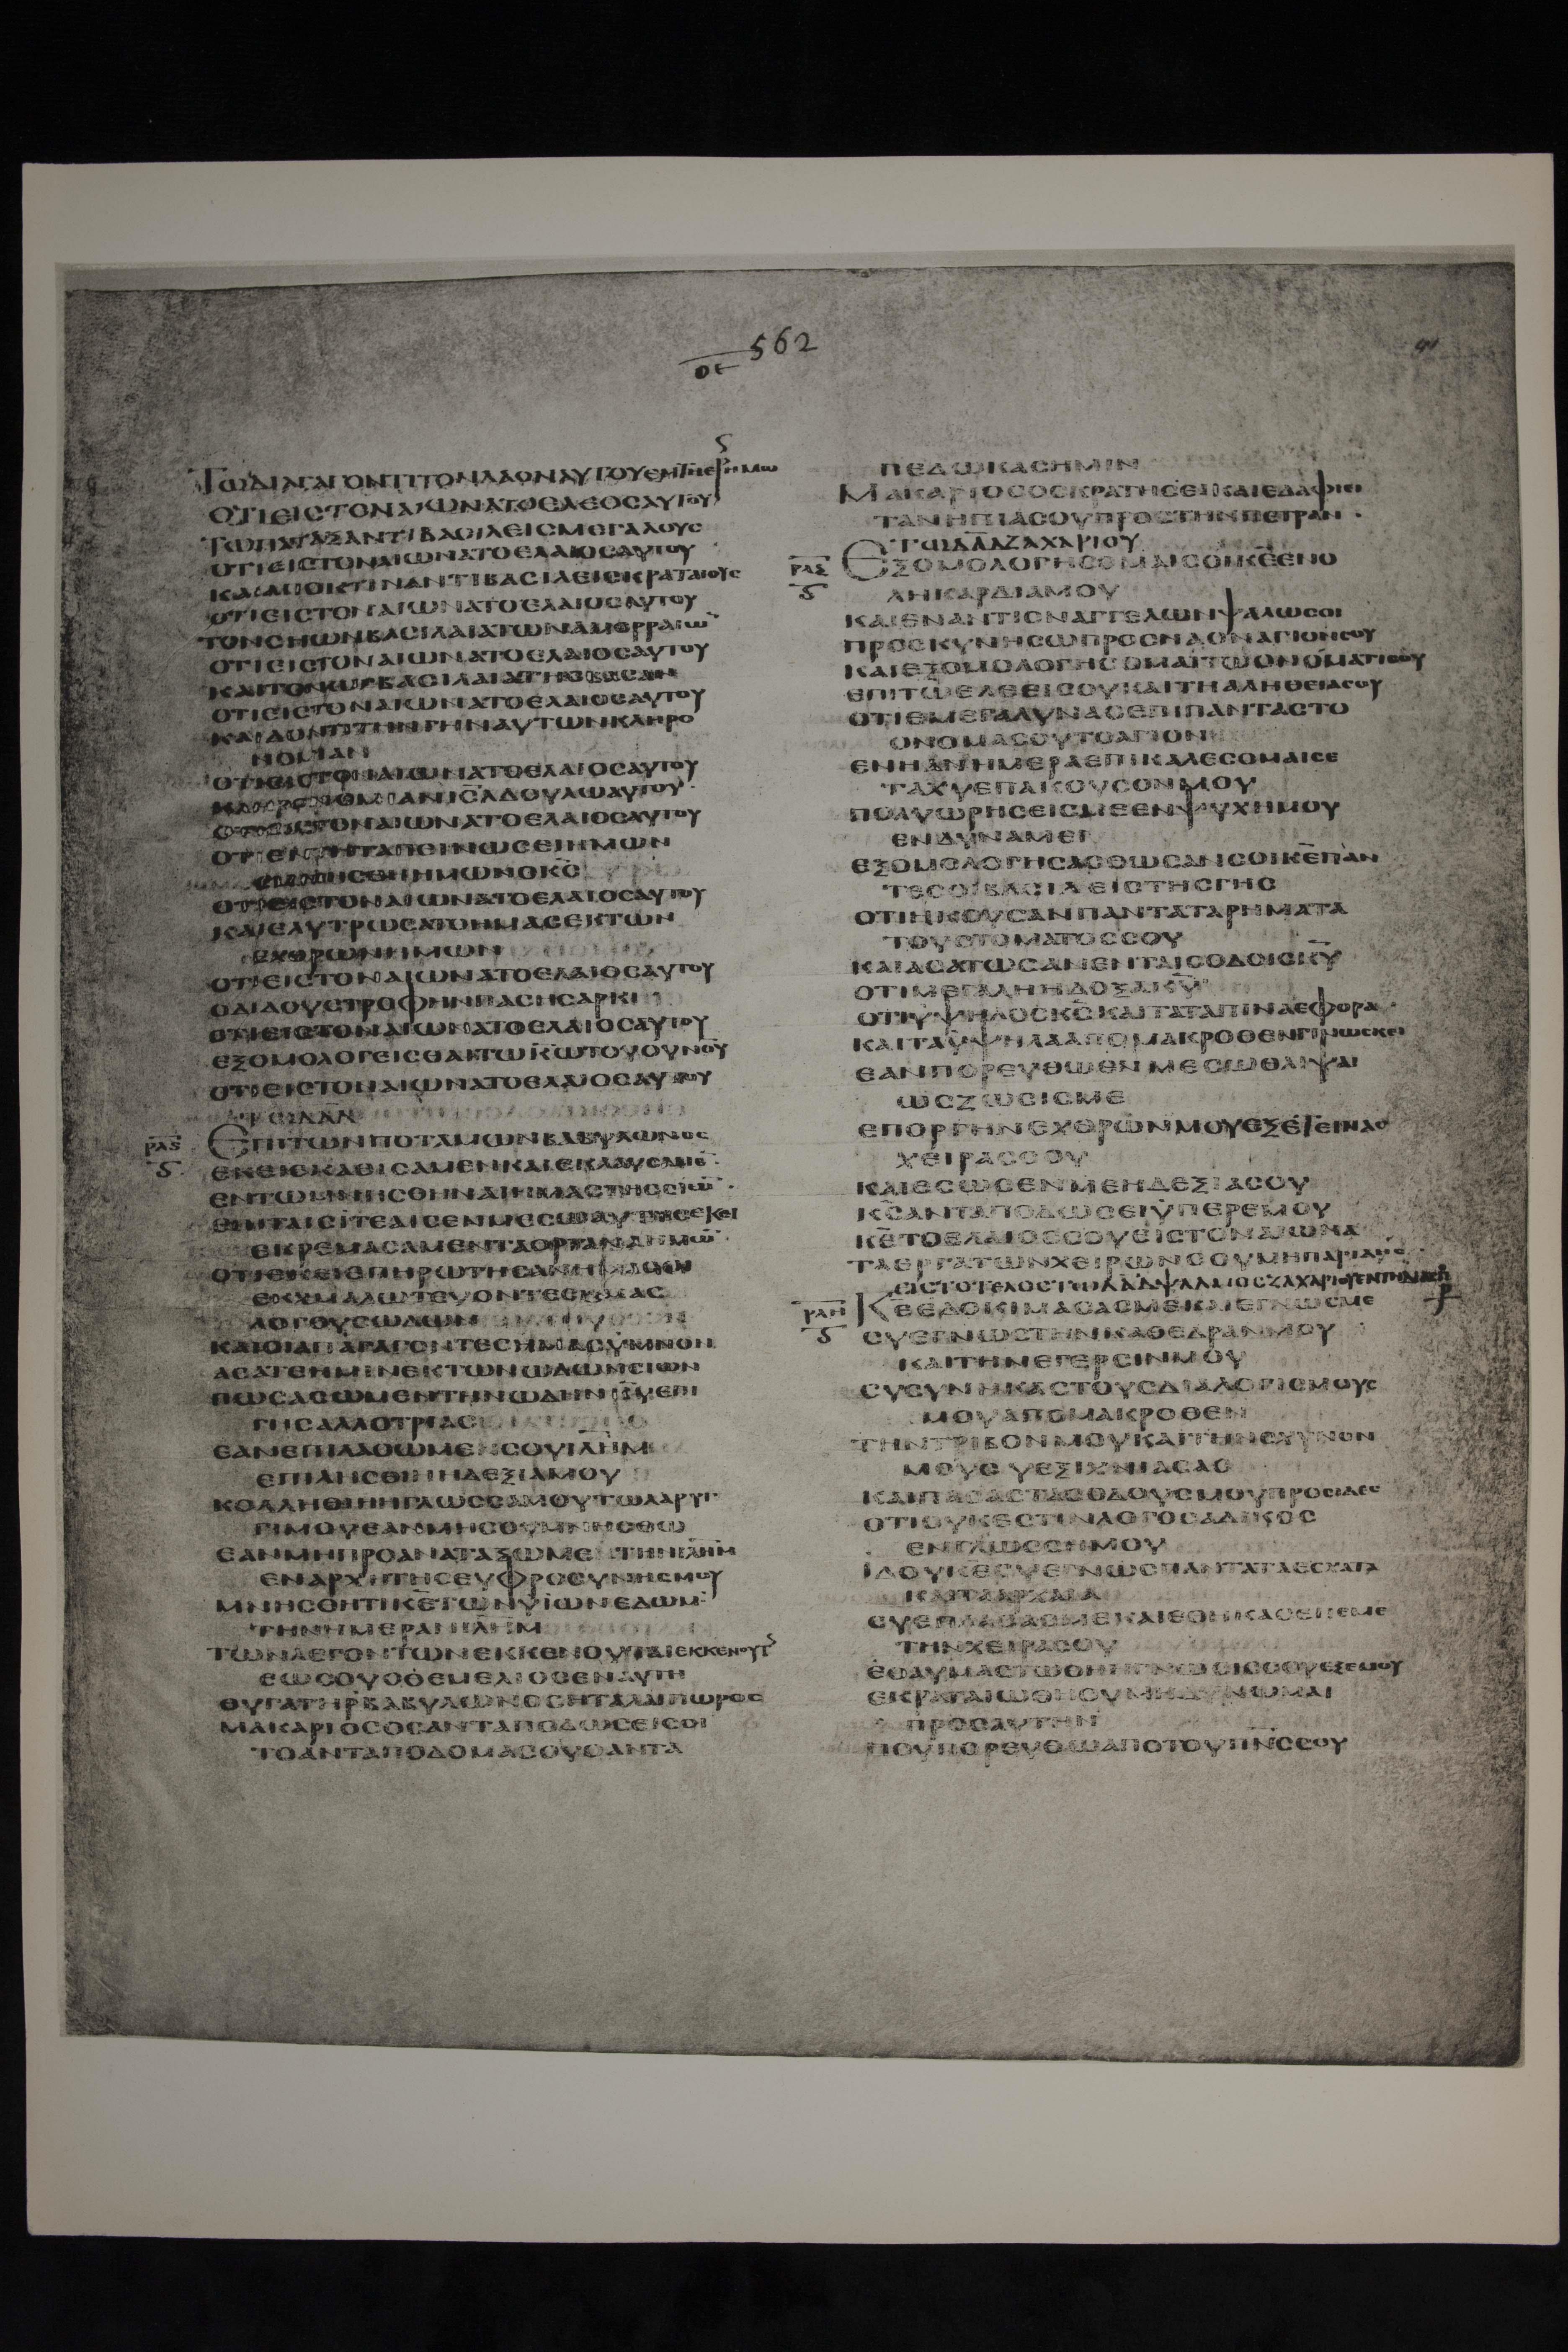 562
ΟΕ
ΤΩΔΙΑΓΑΓΟΝΤΙΤΟΝΛΑΟΝΑΥΤΟΥΕΝΤΗΕΡΗΜΩ
ΟΤΙΕΙΣΤΟΝΑΙΩΝΑΤΟΕΛΕΟΣΑΥΤΟΥ
ΤΩΠΑΤΑΞΑΝΤΙΒΑΣΙΛΕΙΣΜΕΓΑΛΟΥΣ
ΟΤΙΕΙΣΤΟΝΑΙΩΝΑΤΟΕΛΑΙΟΣΑΥΤΟΥ
ΚΑΙΑΠΟΚΤΙΝΑΝΤΙΒΑΣΙΛΕΙΣΚΡΑΤΑΙΟΥΣ
ΟΤΙΕΙΣΤΟΝΑΙΩΝΑΤΟΕΛΑΙΟΣΑΥΤΟΥ
ΤΟΝΣΗΩΝΒΑΣΙΛΑΙΑΤΩΝΑΜΟΡΡΑΙΩ̅
ΟΤΙΕΙΣΤΟΝΑΙΩΝΑΤΟΕΛΑΙΟΣΑΥΤΟΥ
ΚΑΙΤΟΝΩΓΒΑΣΙΛΑΙΑΤΗΣΒΑΣΑΝ
ΟΤΙΕΙΣΤΟΝΑΙΩΝΑΤΟΕΛΑΙΟΣΑΥΤΟΥ
ΚΑΙΔΟΝΤΙΤΗΝΓΗΝΑΥΤΩΝΚΛΗΡΟ
ΝΟΜΙΑΝ
ΟΤΙΕΙΣΤΟΝΑΙΩΝΑΤΟΕΛΑΙΟΣΑΥΤΟΥ
ΚΛΗΡΟΝΟΜΙΑΝΙΣ̅Λ̅ΔΟΥΛΩΑΥΤΟΥ
ΟΤΙΕΙΣΤΟΝΑΙΩΝΑΤΟΕΛΑΙΟΣΑΥΤΟΥ
ΟΤΙΕΝΤΗΤΑΠΕΙΝΩΣΕΙΗΜΩΝ
ΕΜΝΗΣΘΗΗΜΩΝΟΚ̅Σ̅
ΟΤΙΕΙΣΤΟΝΑΙΩΝΑΤΟΕΛΑΙΟΣΑΥΤΟΥ
ΚΑΙΕΛΥΤΡΩΣΑΤΟΗΜΑΣΕΚΤΩΝ
ΕΧΘΡΩΝΗΜΩΝ
ΟΤΙΕΙΣΤΟΝΑΙΩΝΑΤΟΕΛΑΙΟΣΑΥΤΟΥ
ΟΔΙΔΟΥΣΤΡΟΦΗΝΠΑΣΗΣΑΡΚΙ
ΟΤΙΕΙΣΤΟΝΑΙΩΝΑΤΟΕΛΑΙΟΣΑΥΤΟΥ
ΕΞΟΜΟΛΟΓΕΙΣΘΑΙΤΩΚ̅Ω̅ΤΟΥΟΥΝΟΥ
ΟΤΙΕΙΣΤΟΝΑΙΩΝΑΤΟΕΛΑΙΟΣΑΥΤΟΥ
ΤΩΔ̅Α̅Δ̅
ΡΛϚ ΕΠΙΤΩΝΠΟΤΑΜΩΝΒΑΒΥΛΩΝΟΣ
ΕΚΕΙΕΚΑΘΙΣΑΜΕΝΚΑΙΕΚΛΑΥΣΑΜΕ̅
ΕΝΤΩΜΝΗΣΘΗΝΑΙΗΜΑΣΤΗΣΣΙΩ̅
ΕΝΤΑΙΣΙΤΕΑΙΣΕΝΜΕΣΩΑΥΤΗΣΕΚΕΙ
ΕΚΡΕΜΑΣΑΜΕΝΤΑΟΡΓΑΝΑΗΜΩ̅
ΟΤΙΕΚΕΙΕΠΗΡΩΤΗΣΑΝΗΜΑΣΟΙ
ΕΚΧΜΑΛΩΤΕΥΟΝΤΕΣΗΜΑΣ
ΛΟΓΟΥΣΩΔΩΝ
ΚΑΙΟΙΑΠΑΓΑΓΟΝΤΕΣΗΜΑΣΥΜΝΟΝ
ΑΣΑΤΕΗΜΙΝΕΚΤΩΝΩΔΩΝΣΙΩΝ
ΠΩΣΑΣΩΜΕΝΤΗΝΩΔΗΝΚ̅Υ̅ΕΠΙ
ΓΗΣΑΛΛΟΤΡΙΑΣ
ΕΑΝΕΠΙΛΑΘΩΜΕΝΣΟΥΙΛ̅Η̅Μ
ΕΠΙΛΗΣΘΙΗΗΔΕΞΙΑΜΟΥ
ΚΟΛΛΗΘΙΗΗΓΛΩΣΣΑΜΟΥΤΩΛΑΡΥΓ
ΓΙΜΟΥΕΑΝΜΗΣΟΥΜΝΗΣΘΩ
ΕΑΝΜΗΠΡΟΑΝΑΤΑΞΩΜΕΝΤΗΝΙΛ̅Η̅Μ
ΕΝΑΡΧΗΤΗΣΕΥΦΡΟΣΥΝΗΣΜΟΥ
ΜΝΗΣΘΗΤΙΚ̅Ε̅ΤΩΝΥΙΩΝΕΔΩΜ
ΤΗΝΗΜΕΡΑΝΙΛ̅Η̅Μ
ΤΩΝΛΕΓΟΝΤΩΝΕΚΚΕΝΟΥΤΑΙΕΚΚΕΝΟΥΤ
ΕΩΣΟΥΟΘΕΜΕΛΙΟΣΕΝΑΥΤΗ
ΘΥΓΑΤΗΡΒΑΒΥΛΩΝΟΣΗΤΑΛΑΙΠΩΡΟΣ
ΜΑΚΑΡΙΟΣΟΣΑΝΤΑΠΟΔΩΣΕΙΣΟΙ
ΤΟΑΝΤΑΠΟΔΟΜΑΣΟΥΟΑΝΤΑ
ΠΕΔΩΚΑΣΗΜΙΝ
ΜΑΚΑΡΙΟΣΟΣΚΡΑΤΗΣΕΙΚΑΙΕΔΑΦΙΕΙ
ΤΑΝΗΠΙΑΣΟΥΠΡΟΣΤΗΝΠΕΤΡΑΝ
ΤΩΔ̅Α̅Δ̅ΖΑΧΑΡΙΟΥ
ΡΛΖ ΕΞΟΜΟΛΟΓΗΣΟΜΑΙΣΟΙΚ̅Ε̅ΕΝΟ
ΛΗΚΑΡΔΙΑΜΟΥ
ΚΑΙΕΝΑΝΤΙΟΝΑΓΓΕΛΩΝΨΑΛΩΣΟΙ
ΠΡΟΣΚΥΝΗΣΩΠΡΟΣΝΑΟΝΑΓΙΟΝΣΟΥ
ΚΑΙΕΞΟΜΟΛΟΓΗΣΟΜΑΙΤΩΟΝΟΜΑΤΙΣΟΥ
ΕΠΙΤΩΕΛΕΕΙΣΟΥΚΑΙΤΗΑΛΗΘΕΙΑΣΟΥ
ΟΤΙΕΜΕΓΑΛΥΝΑΣΕΠΙΠΑΝΤΑΣΤΟ
ΟΝΟΜΑΣΟΥΤΟΑΓΙΟΝ
ΕΝΗΑΝΗΜΕΡΑΕΠΙΚΑΛΕΣΟΜΑΙΣΕ
ΤΑΧΥΕΠΑΚΟΥΣΟΝΜΟΥ
ΠΟΛΥΩΡΗΣΕΙΣΜΕΕΝΨΥΧΗΜΟΥ
ΕΝΔΥΝΑΜΕΙ
ΕΞΟΜΟΛΟΓΗΣΑΣΘΩΣΑΝΣΟΙΚ̅Ε̅ΠΑΝ
ΤΕΣΟΙΒΑΣΙΛΕΙΣΤΗΣΓΗΣ
ΟΤΙΗΚΟΥΣΑΝΠΑΝΤΑΤΑΡΗΜΑΤΑ
ΤΟΥΣΤΟΜΑΤΟΣΣΟΥ
ΚΑΙΑΣΑΤΩΣΑΝΕΝΤΑΙΣΟΔΟΙΣΚ̅Υ̅
ΟΤΙΜΕΓΑΛΗΗΔΟΞΑΚ̅Υ̅
ΟΤΙΥΨΗΛΟΣΚ̅Σ̅ΚΑΙΤΑΤΑΠΙΝΑΕΦΟΡΑ
ΚΑΙΤΑΥΨΗΛΑΑΠΟΜΑΚΡΟΘΕΝΓΙΝΩΣΚΕΙ
ΕΑΝΠΟΡΕΥΘΩΕΝΜΕΣΩΘΛΙΨΑΙ
ΩΣΖΩΣΙΣΜΕ
ΕΠΟΡΓΗΝΕΧΘΡΩΝΜΟΥΕΞΕΤΕΙΝΑΣ
ΧΕΙΡΑΣΣΟΥ
ΚΑΙΕΣΩΣΕΝΜΕΗΔΕΞΙΑΣΟΥ
Κ̅Σ̅ΑΝΤΑΠΟΔΩΣΕΙΥΠΕΡΕΜΟΥ
Κ̅Ε̅ΤΟΕΛΑΙΟΣΣΟΥΕΙΣΤΟΝΑΙΩΝΑ
ΤΑΕΡΓΑΤΩΝΧΕΙΡΩΝΣΟΥΜΗΠΑΡΙΔΗΣ
ΕΙΣΤΟΤΕΛΟΣΤΩΔ̅Α̅Δ̅ΨΑΛΜΟΣΖΑΧΑΡΙΟΥΕΝΤΗΔΙΑΣΠ
ΡΛΗ Κ̅Ε̅ΕΔΟΚΙΜΑΣΑΣΜΕΚΑΙΕΓΝΩΣΜΕ
ΣΥΕΓΝΩΣΤΗΝΚΑΘΕΔΡΑΝΜΟΥ
ΚΑΙΤΗΝΕΓΕΡΣΙΝΜΟΥ
ΣΥΣΥΝΗΚΑΣΤΟΥΣΔΙΑΛΟΓΙΣΜΟΥΣ
ΜΟΥΑΠΟΜΑΚΡΟΘΕΝ
ΤΗΝΤΡΙΒΟΝΜΟΥΚΑΙΤΗΝΣΧΥΝΟΝ
ΜΟΥΣΥΕΞΙΧΝΙΑΣΑΣ
ΚΑΙΠΑΣΑΣΤΑΣΟΔΟΥΣΜΟΥΠΡΟΕΙΔΕΣ
ΟΤΙΟΥΚΕΣΤΙΝΛΟΓΟΣΑΔΙΚΟΣ
ΕΝΓΛΩΣΣΗΜΟΥ
ΙΔΟΥΚ̅Ε̅ΣΥΕΓΝΩΣΠΑΝΤΑΤΑΕΣΧΑΤΑ
ΚΑΙΤΑΑΡΧΑΙΑ
ΣΥΕΠΛΑΣΑΣΜΕΚΑΙΕΘΗΚΑΣΕΠΕΜΕ
ΤΗΝΧΕΙΡΑΣΟΥ
ΕΘΑΥΜΑΣΤΩΘΗΗΓΝΩΣΙΣΣΟΥΕΞΕΜΟΥ
ΕΚΡΑΤΑΙΩΘΗΟΥΜΗΔΥΝΩΜΑΙ
ΠΡΟΣΑΥΤΗΝ
ΠΟΥΠΟΡΕΥΘΩΑΠΟΤΟΥΠΝ̅Σ̅ΣΟΥ